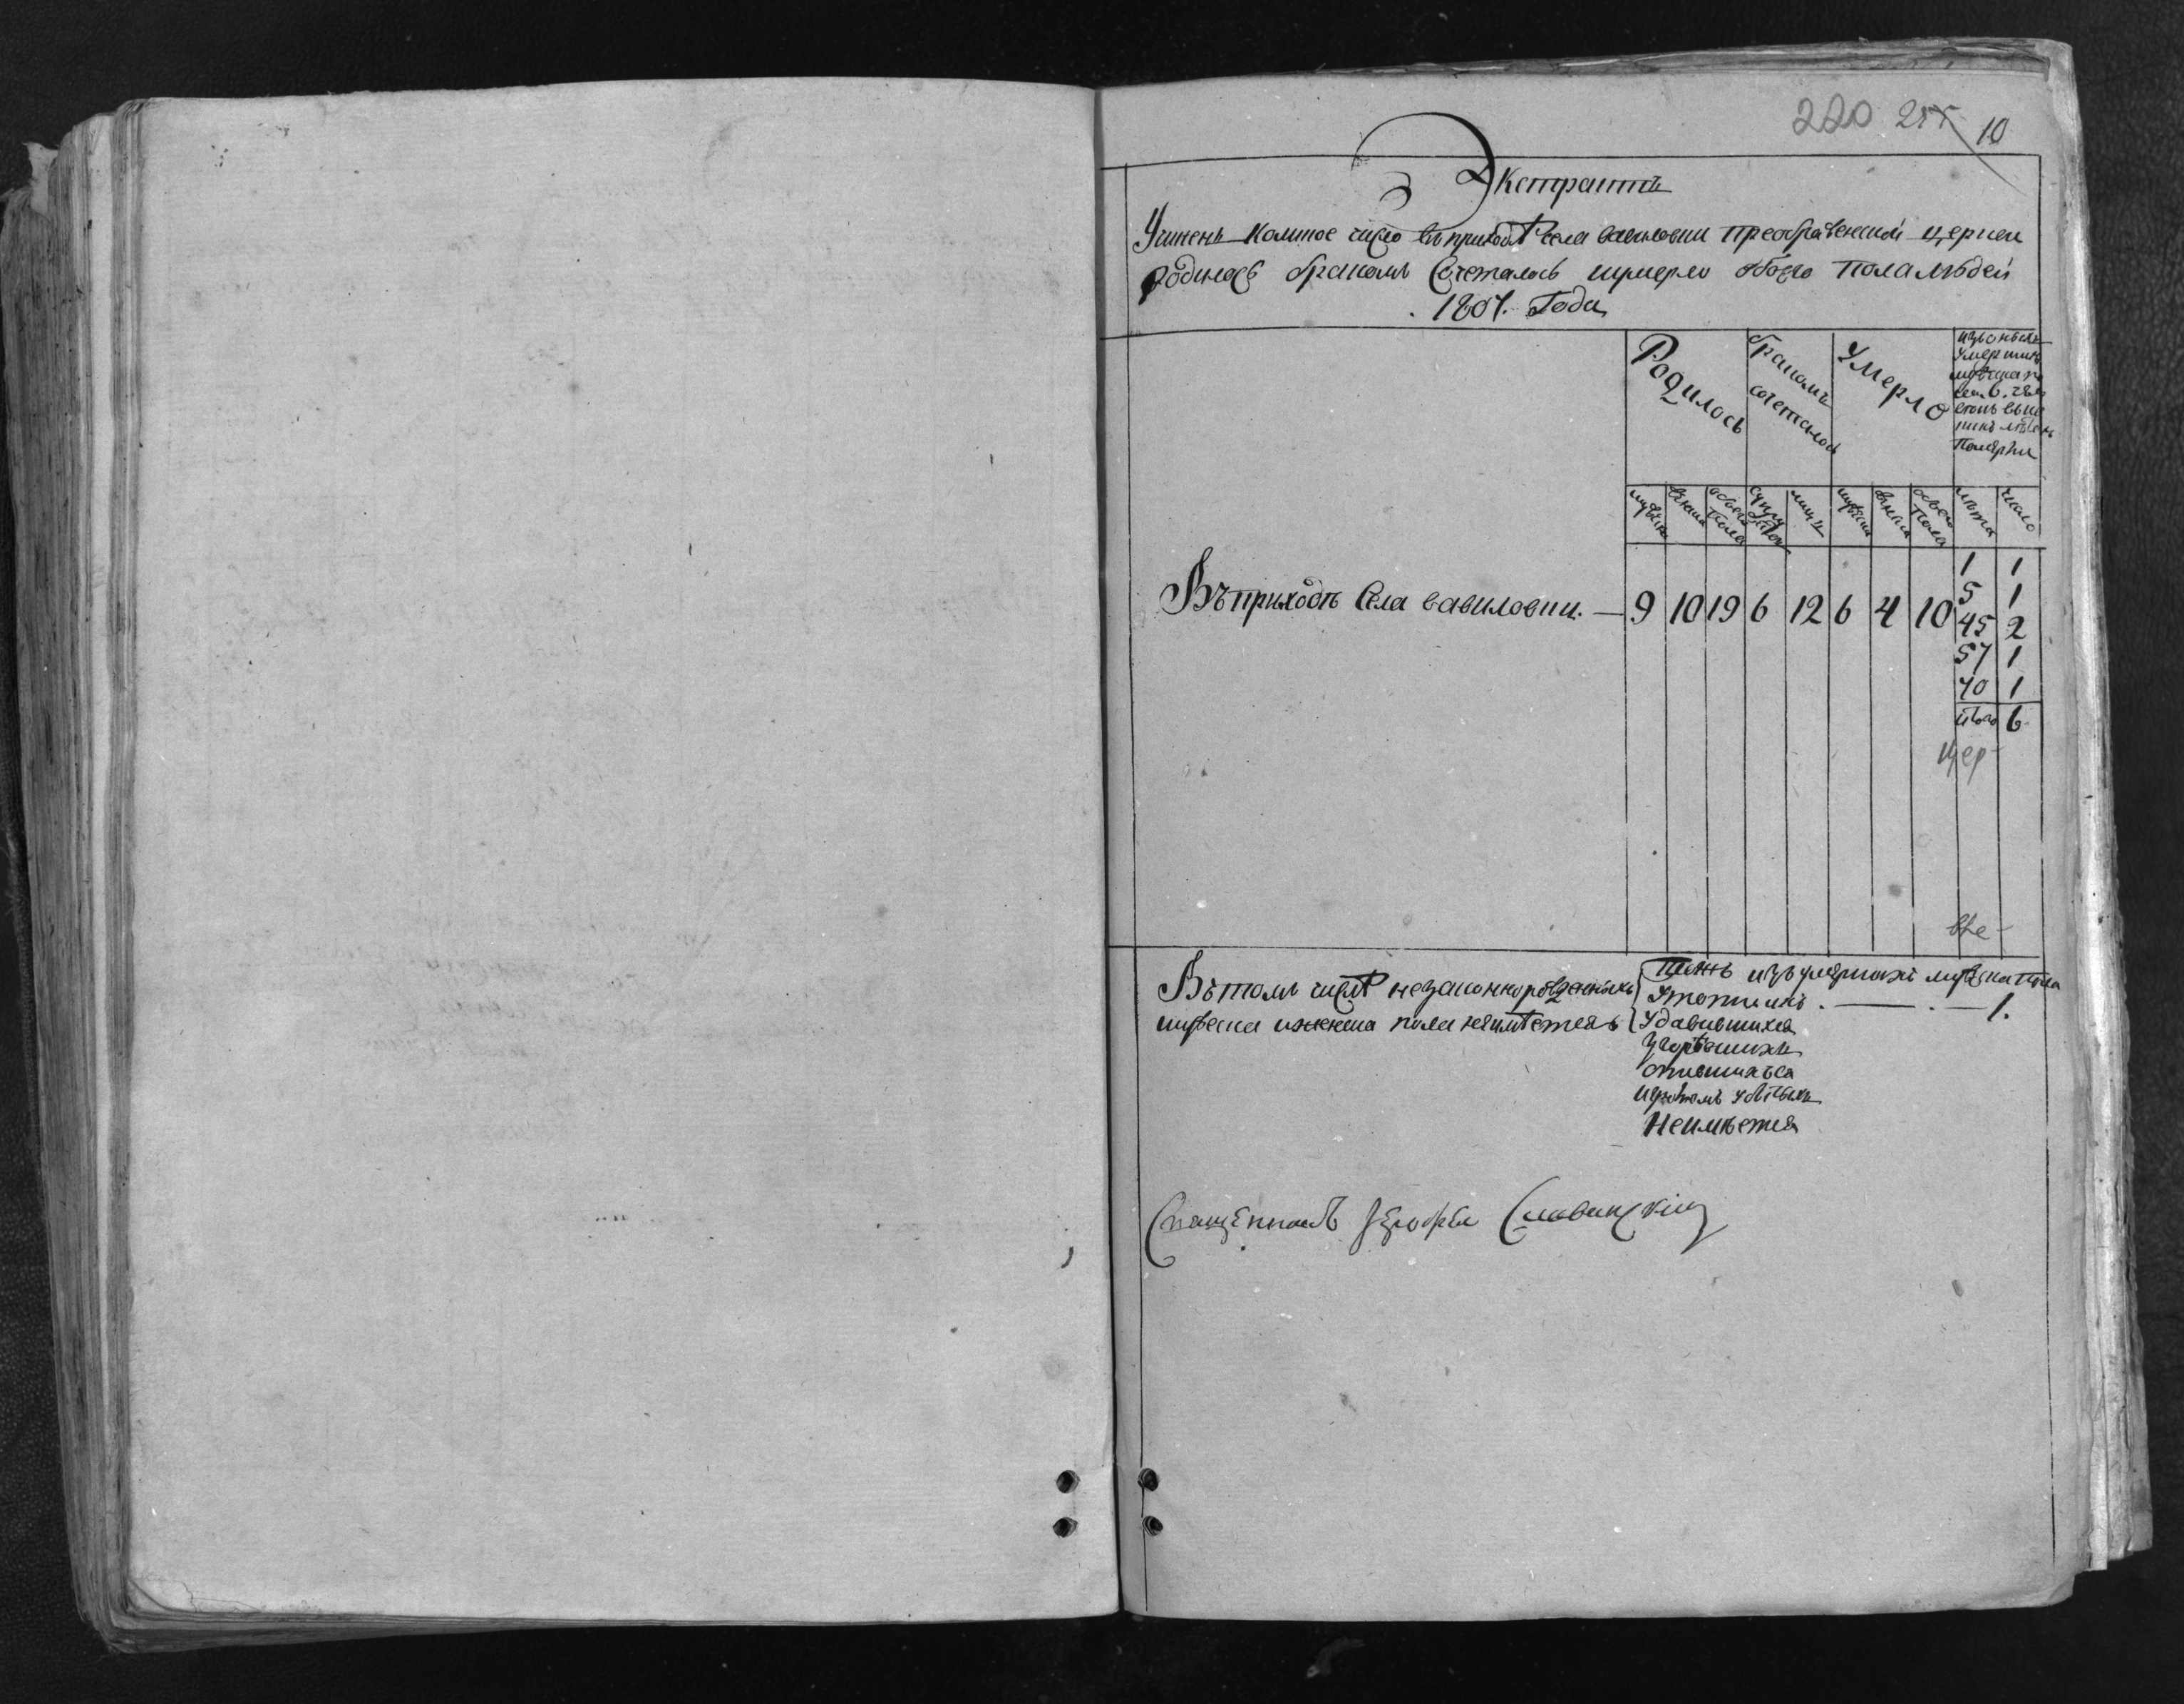 220 255 10
Экстрактъ
Учиненъ коликое число въ приходѣ села вавиловки преображенской церкви
родилось бракомъ сочеталось и умерло обоего пола людей
1807. Года
Родилось бракомъ сочеталось Умерло изъ оныхъ умершихъ мужеска по
мужеска женска обоего пола супру жествъ лицъ мужеска женска обоего пола лѣта число
1 1
5 1
Въ приходѣ Села вавиловки. — 9 10 19 6 12 6 4 10
45 2
57 1
70 1
итого 6
цер-
вѣ-
Въ томъ числѣ незаконнорожденныхъ
мужеска и женска пола неимѣется
изъ умершихъ мужеска пола
Утопшихъ . — . — 1.
Удавившихся
Згорѣвшихъ
опившихъся
Неимѣется
Священникъ Іерофей Славинскій